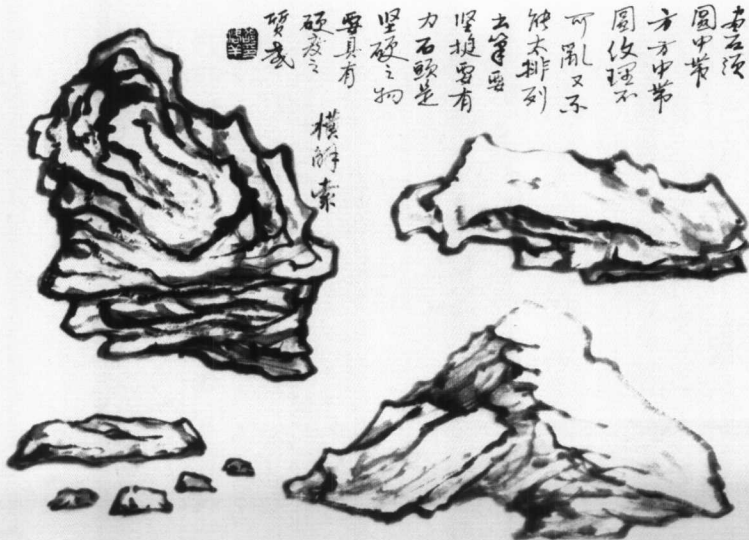 畫石須
圓中带
方方中带
圓紋理不
可亂又不
能太排列
出筆要
坚挺要有
力石頭是
坚硬之物
要具有
硬度之
質感
横解索